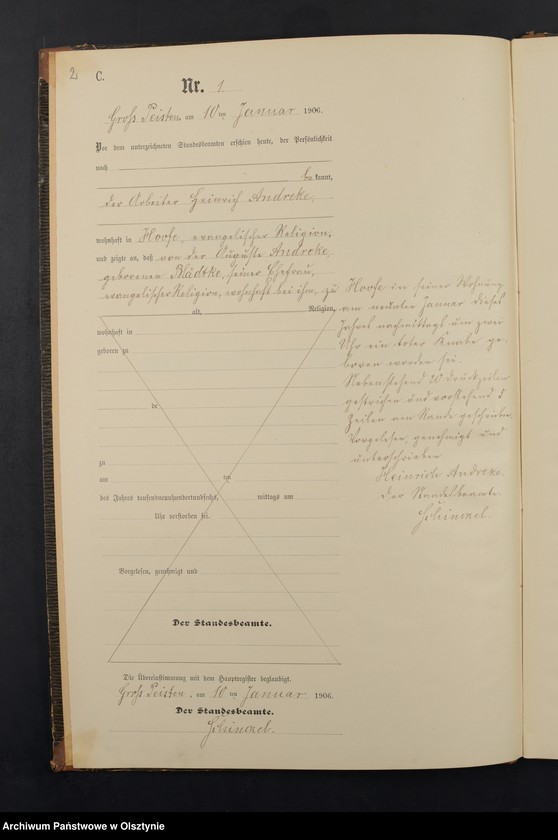 2.
C.
Nr. 1
Groß Peisten am 10 ten Januar 1906.
Vor dem unterzeichneten Standesbeamten erschien heute, der Persönlichkeit
nach
be kannt,
der Arbeiter Heinrich Andreke,
wohnhaft in Hoofe, evangelischer Religion,
und zeigte an, daß von der Auguste Andreke,
geborenen Mädtke, seiner Ehefrau,
evangelischer Religion, wohnhaft bei ihm, zu
alt, Religion,
wohnhaft in
geboren zu
de
zu
am ten
des Jahres tausendneunhundertundsechs, mittags um
Uhr verstorben sei.
Vorgelesen, genehmigt und
Der Standesbeamte.
Hoofe in seiner Wohnung
am neunten Januar dieses
Jahres nachmittags um zwei
Uhr ein toter Knabe ge-
boren worden sei.
Nebenstehend 20 Druckzeilen
gestrichen und vorstehend 5
Zeilen am Rande geschrieben.
Vorgelesen, genehmigt und
unterschrieben
Heinrich Andreke.
Der Standesbeamte.
Die Übereinstimmung mit dem Hauptregister beglaubigt.
Groß Peisten, am 10 ten Januar 1906.
Der Standesbeamte.
Archiwum Państwowe w Olsztynie